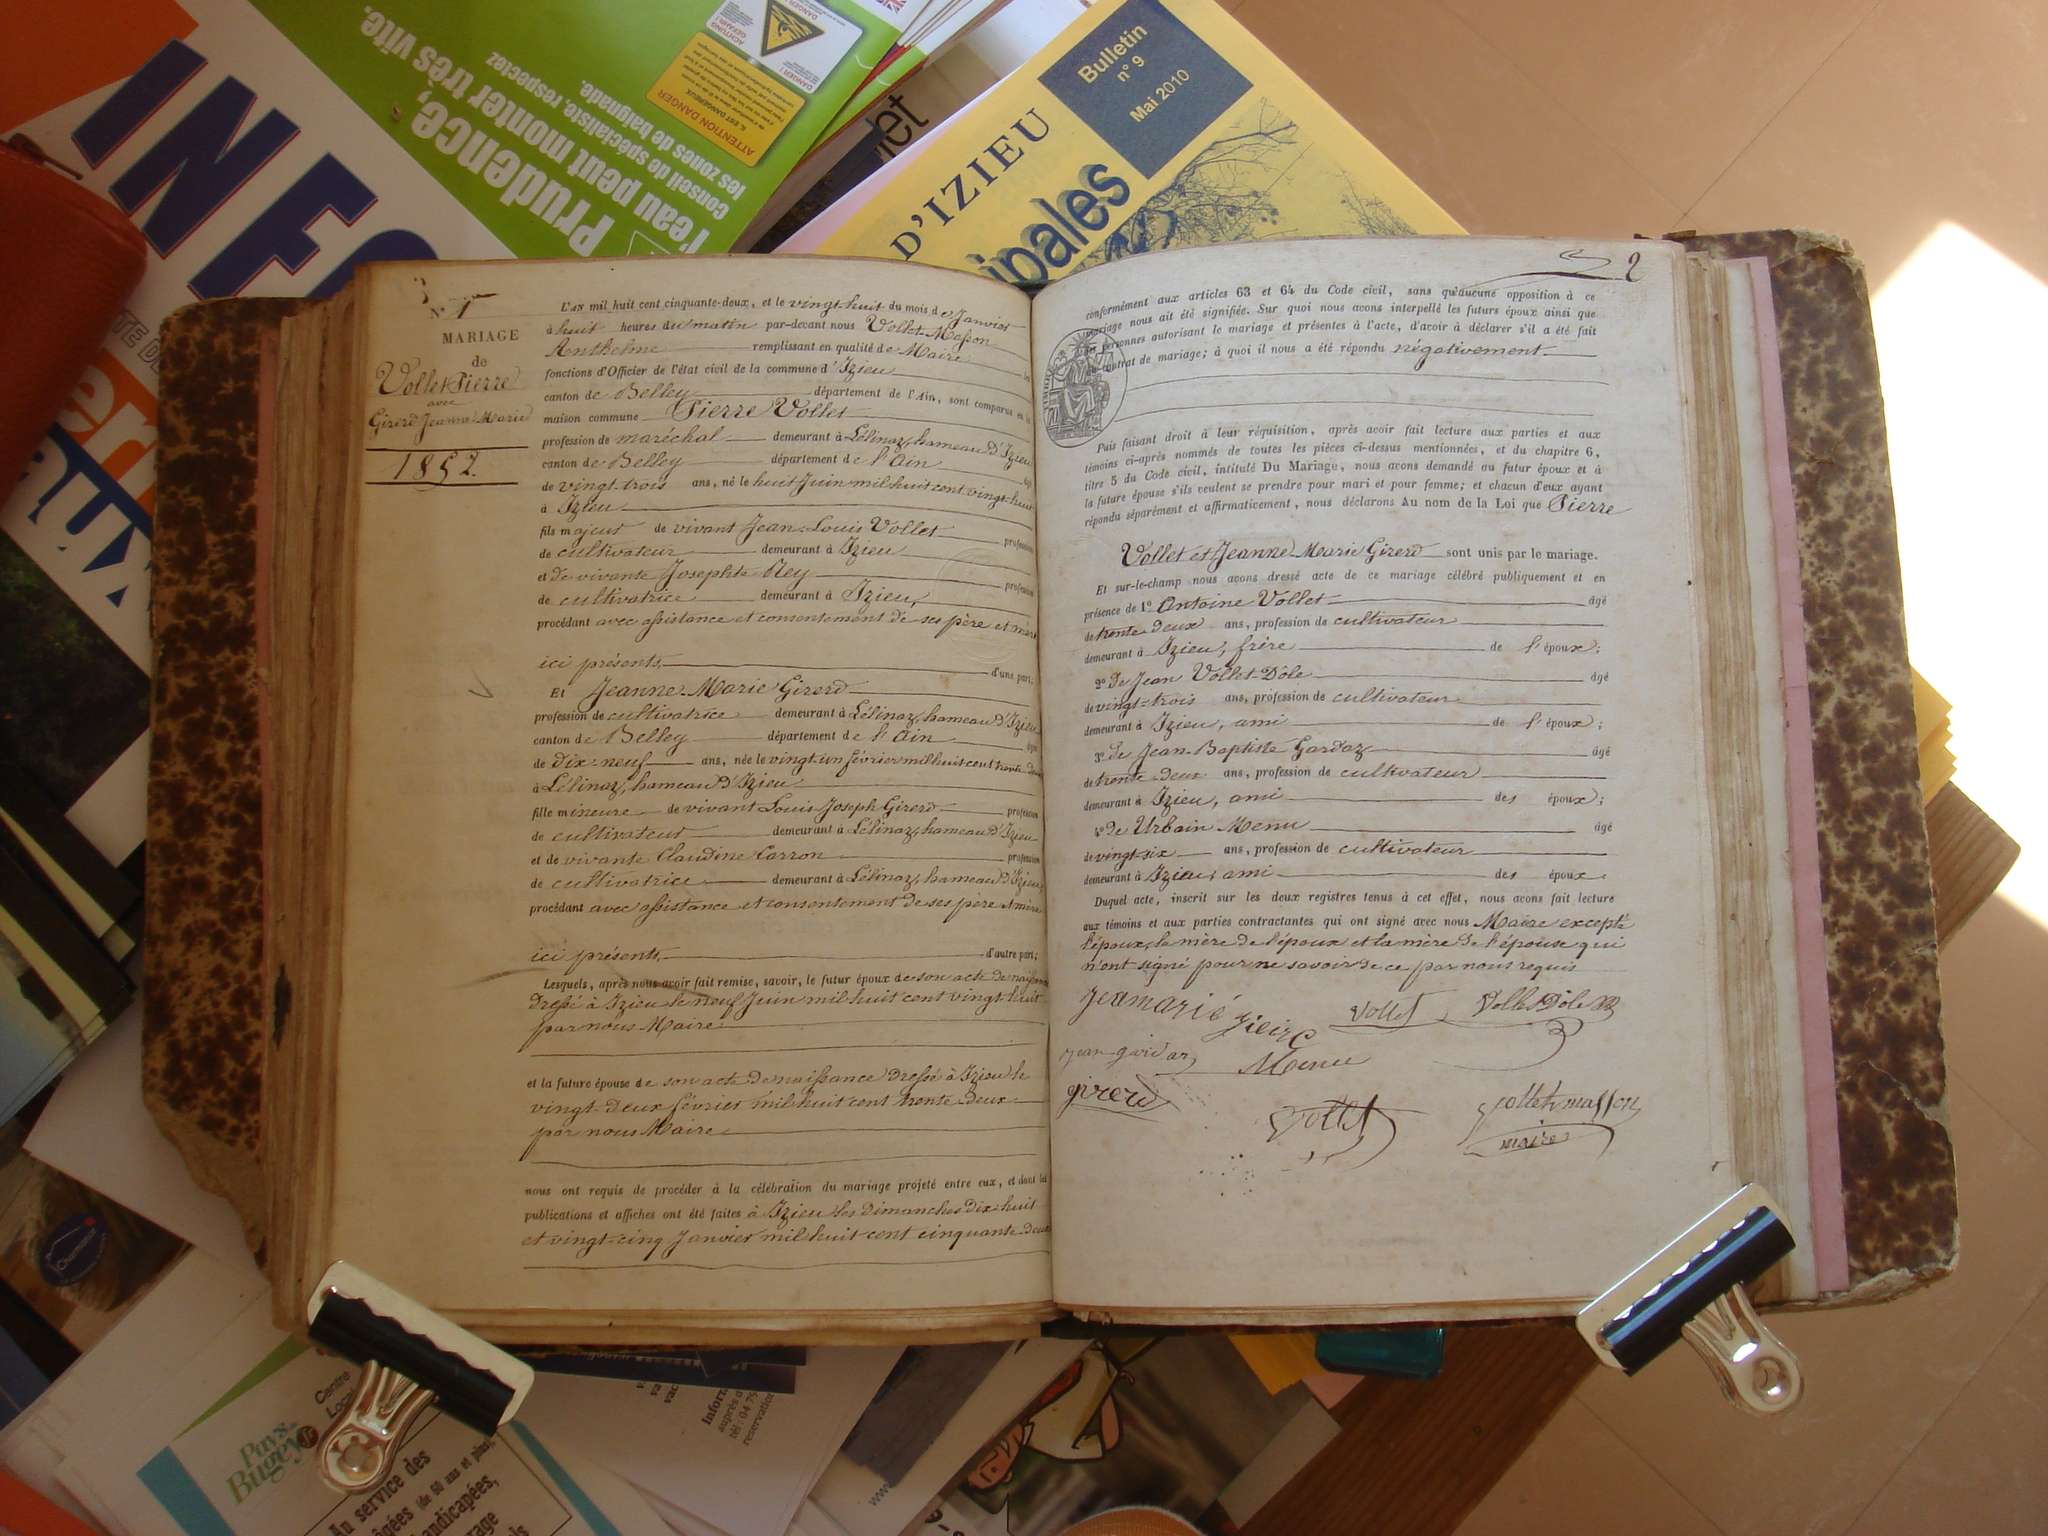 INFO
Prudence,
l'eau peut monter très vite.
conseil de spécialiste, respectez
les zones de baignade.
ATTENTION DANGER
IL EST DANGEREUX
ACHTUNG GEFAHR!
DANGER!
Bulletin
n° 9
Mai 2010
D'IZIEU
ipales
N° 1
MARIAGE
de
Vollet Pierre
avec
Girerd Jeanne Marie
1852
L'AN mil huit cent cinquante-deux, et le vingt-huit du mois de Janvier
à huit heures du matin par-devant nous Vollet-Masson
Anthelme remplissant en qualité de Maire les
fonctions d'Officier de l'état civil de la commune d'Izieu
canton de Belley département de l'Ain, sont comparus en la
maison commune Pierre Vollet
profession de maréchal demeurant à Lélinaz, hameau d'Izieu
canton de Belley département de l'Ain âgé
de vingt-trois ans, né le huit Juin mil huit cent vingt-huit
à Izieu
fils majeur de vivant Jean-Louis Vollet profession
de cultivateur demeurant à Izieu
et de vivante Josephte Rey profession
de cultivatrice demeurant à Izieu,
procédant avec assistance et consentement de ses père et mère
ici présents, d'une part,
Et Jeanne-Marie Girerd
profession de cultivatrice demeurant à Lélinaz, hameau d'Izieu
canton de Belley département de l'Ain âgée
de dix-neuf ans, née le vingt-un février mil huit cent trente-deux
à Lélinaz, hameau d'Izieu
fille mineure de vivant Louis-Joseph Girerd profession
de cultivateur demeurant à Lélinaz, hameau d'Izieu
et de vivante Claudine Carron profession
de cultivatrice demeurant à Lélinaz, hameau d'Izieu,
procédant avec assistance et consentement de ses père et mère
ici présents, d'autre part;
Lesquels, après nous avoir fait remise, savoir, le futur époux de son acte de naissance
dressé à Izieu le neuf Juin mil huit cent vingt-huit
par nous Maire
et la future épouse de son acte de naissance dressé à Izieu le
vingt-deux février mil huit cent trente-deux
par nous Maire
nous ont requis de procéder à la célébration du mariage projeté entre eux, et dont les
publications et affiches ont été faites à Izieu les dimanches dix-huit
et vingt-cinq Janvier mil huit cent cinquante-deux
2
conformément aux articles 63 et 64 du Code civil, sans qu'aucune opposition à ce
mariage nous ait été signifiée. Sur quoi nous avons interpellé les futurs époux ainsi que
les personnes autorisant le mariage et présentes à l'acte, d'avoir à déclarer s'il a été fait
un contrat de mariage; à quoi il nous a été répondu négativement
Puis faisant droit à leur réquisition, après avoir fait lecture aux parties et aux
témoins ci-après nommés de toutes les pièces ci-dessus mentionnées, et du chapitre 6,
titre 5 du Code civil, intitulé Du Mariage, nous avons demandé au futur époux et à
la future épouse s'ils veulent se prendre pour mari et pour femme; et chacun d'eux ayant
répondu séparément et affirmativement, nous déclarons Au nom de la Loi que Pierre
Vollet et Jeanne-Marie Girerd sont unis par le mariage.
Et sur-le-champ nous avons dressé acte de ce mariage célébré publiquement et en
présence de 1° Antoine Vollet âgé
de trente deux ans, profession de cultivateur
demeurant à Izieu, frère de l'époux;
2° de Jean Vollet-Dôle âgé
de vingt-trois ans, profession de cultivateur
demeurant à Izieu, ami de l'époux;
3° de Jean-Baptiste Gardaz âgé
de trente-deux ans, profession de cultivateur
demeurant à Izieu, ami des époux;
4° de Urbain Menu âgé
de vingt-six ans, profession de cultivateur
demeurant à Izieu, ami des époux.
Duquel acte, inscrit sur les deux registres tenus à cet effet, nous avons fait lecture
aux témoins et aux parties contractantes qui ont signé avec nous Maire excepté
l'époux, la mère de l'époux et la mère de l'épouse qui
n'ont signé pour ne savoir de ce par nous requis
Jeamarie
Vollet
Vollet Dôle
jean gardaz
Menu
girerd
Vollet
Vollet masson
maire
Pays
Bugey
Centre
Local
Au service des
âgées (de 60 ans et plus),
handicapées,
Infor
auprès d
tél : 04 79
réservation
www